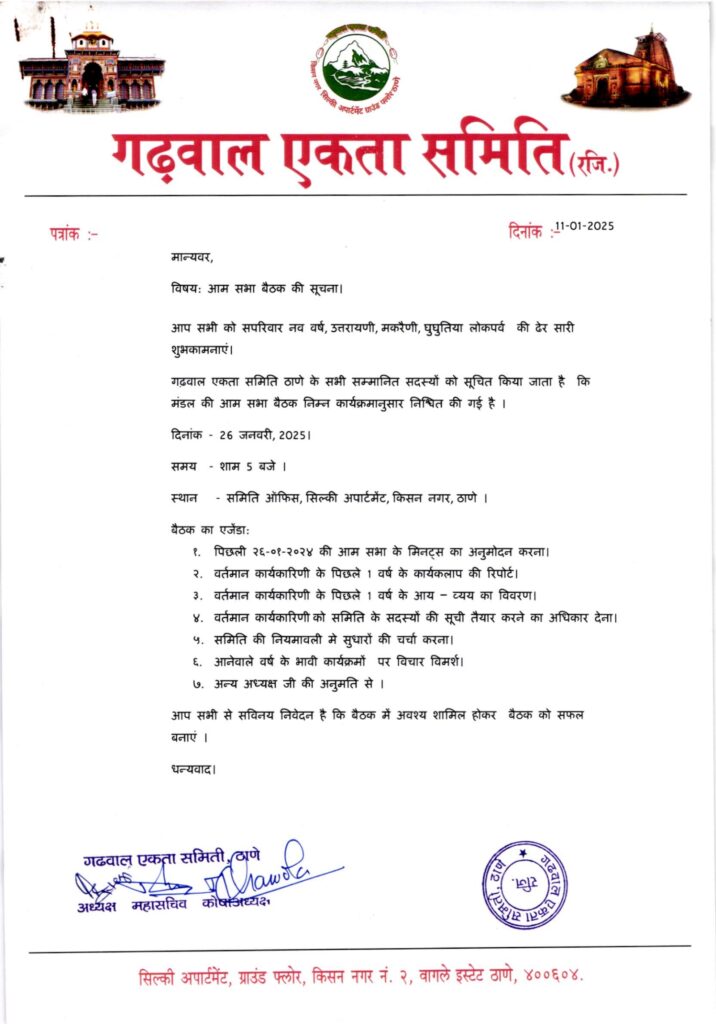 गढ़वाल एकता समिति
किसन नगर सिल्की अपार्टमेंट ग्राउंड फ्लोर ठाणे
गढ़वाल एकता समिति (रजि.)
पत्रांक :–
दिनांक :– 11-01-2025
मान्यवर,
विषय: आम सभा बैठक की सूचना।
आप सभी को सपरिवार नव वर्ष, उत्तरायणी, मकरैणी, घुघुतिया लोकपर्व की ढेर सारी
शुभकामनाएं।
गढ़वाल एकता समिति ठाणे के सभी सम्मानित सदस्यों को सूचित किया जाता है कि
मंडल की आम सभा बैठक निम्न कार्यक्रमानुसार निश्चित की गई है ।
दिनांक - 26 जनवरी, 2025।
समय - शाम 5 बजे ।
स्थान - समिति ऑफिस, सिल्की अपार्टमेंट, किसन नगर, ठाणे ।
बैठक का एजेंडा:
१. पिछली २६-०१-२०२४ की आम सभा के मिनट्स का अनुमोदन करना।
२. वर्तमान कार्यकारिणी के पिछले 1 वर्ष के कार्यकलाप की रिपोर्ट।
३. वर्तमान कार्यकारिणी के पिछले 1 वर्ष के आय – व्यय का विवरण।
४. वर्तमान कार्यकारिणी को समिति के सदस्यों की सूची तैयार करने का अधिकार देना।
५. समिति की नियमावली मे सुधारों की चर्चा करना।
६. आनेवाले वर्ष के भावी कार्यक्रमों पर विचार विमर्श।
७. अन्य अध्यक्ष जी की अनुमति से ।
आप सभी से सविनय निवेदन है कि बैठक में अवश्य शामिल होकर बैठक को सफल
बनाएं ।
धन्यवाद।
गढवाल एकता समिती, ठाणे
अध्यक्ष महासचिव कोषाध्यक्ष
गढवाल एकता समिती, ठाणे
रजि.
सिल्की अपार्टमेंट, ग्राउंड फ्लोर, किसन नगर नं. २, वागले इस्टेट ठाणे, ४००६०४.